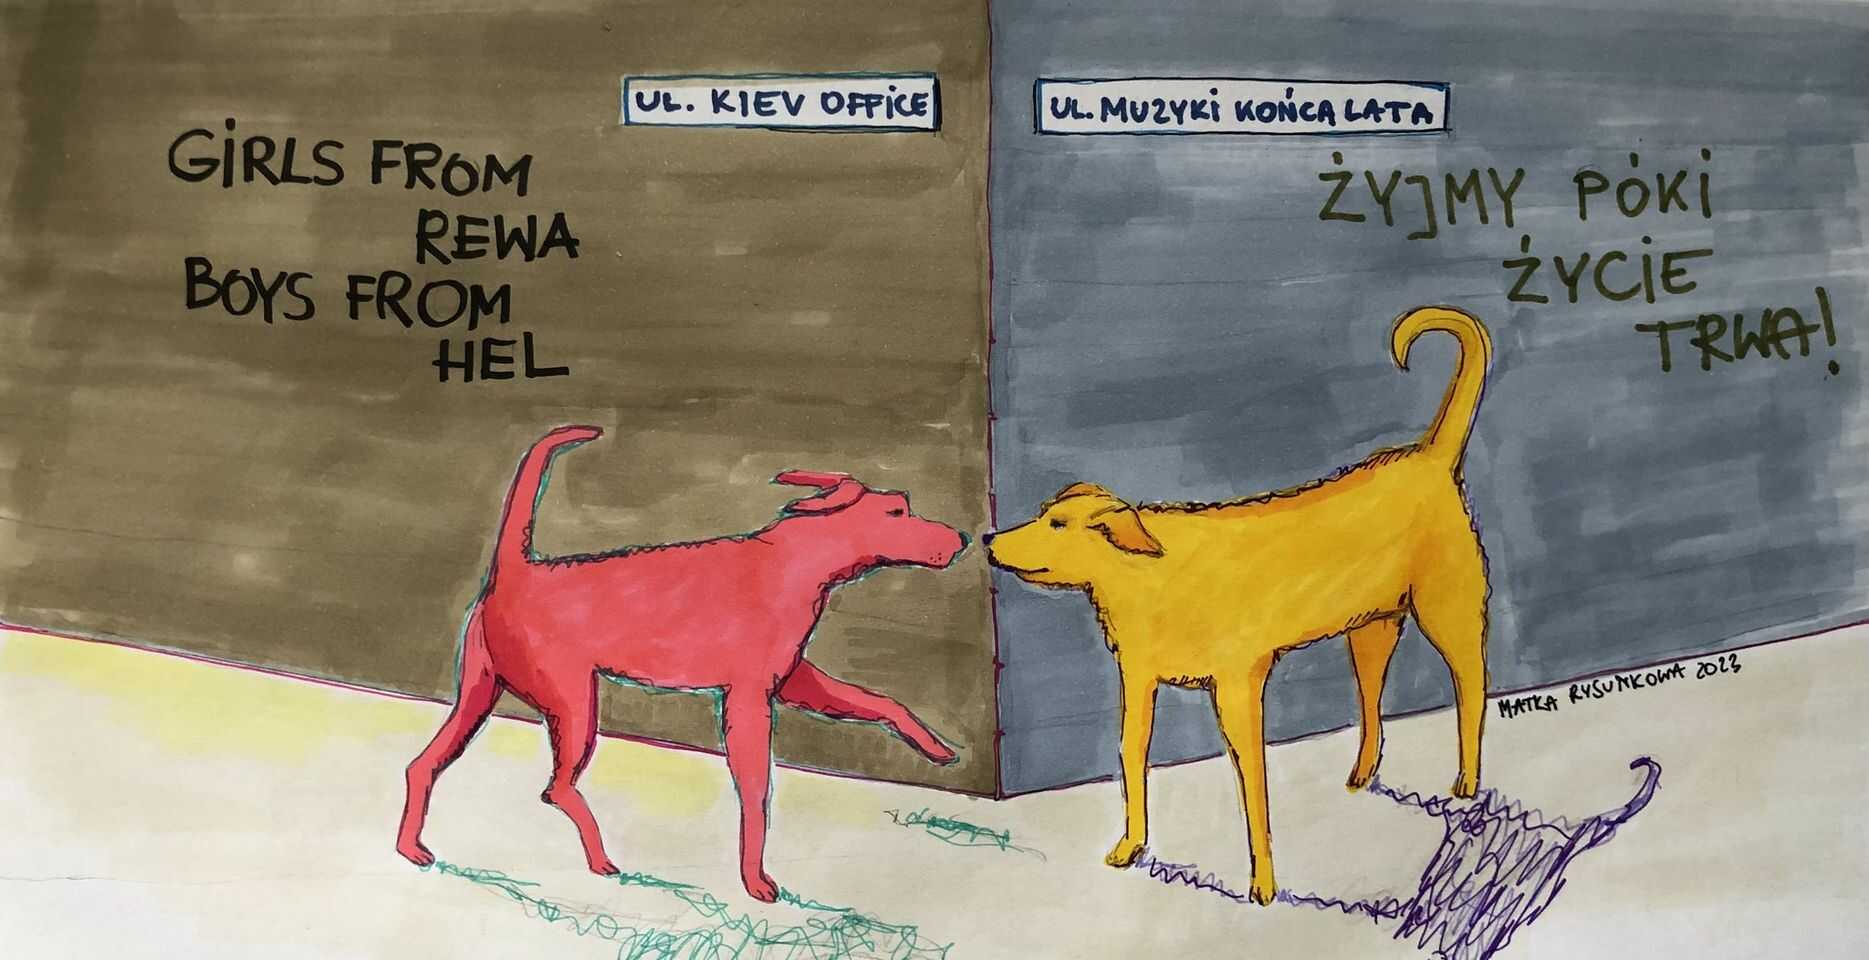 UL. KIEV OFFICE
GIRLS FROM
REWA
BOYS FROM
HEL
UL. MUZYKI KOŃCA LATA
ŻYJMY PÓKI
ŻYCIE
TRWA!
MATKA RYSUNKOWA 2023